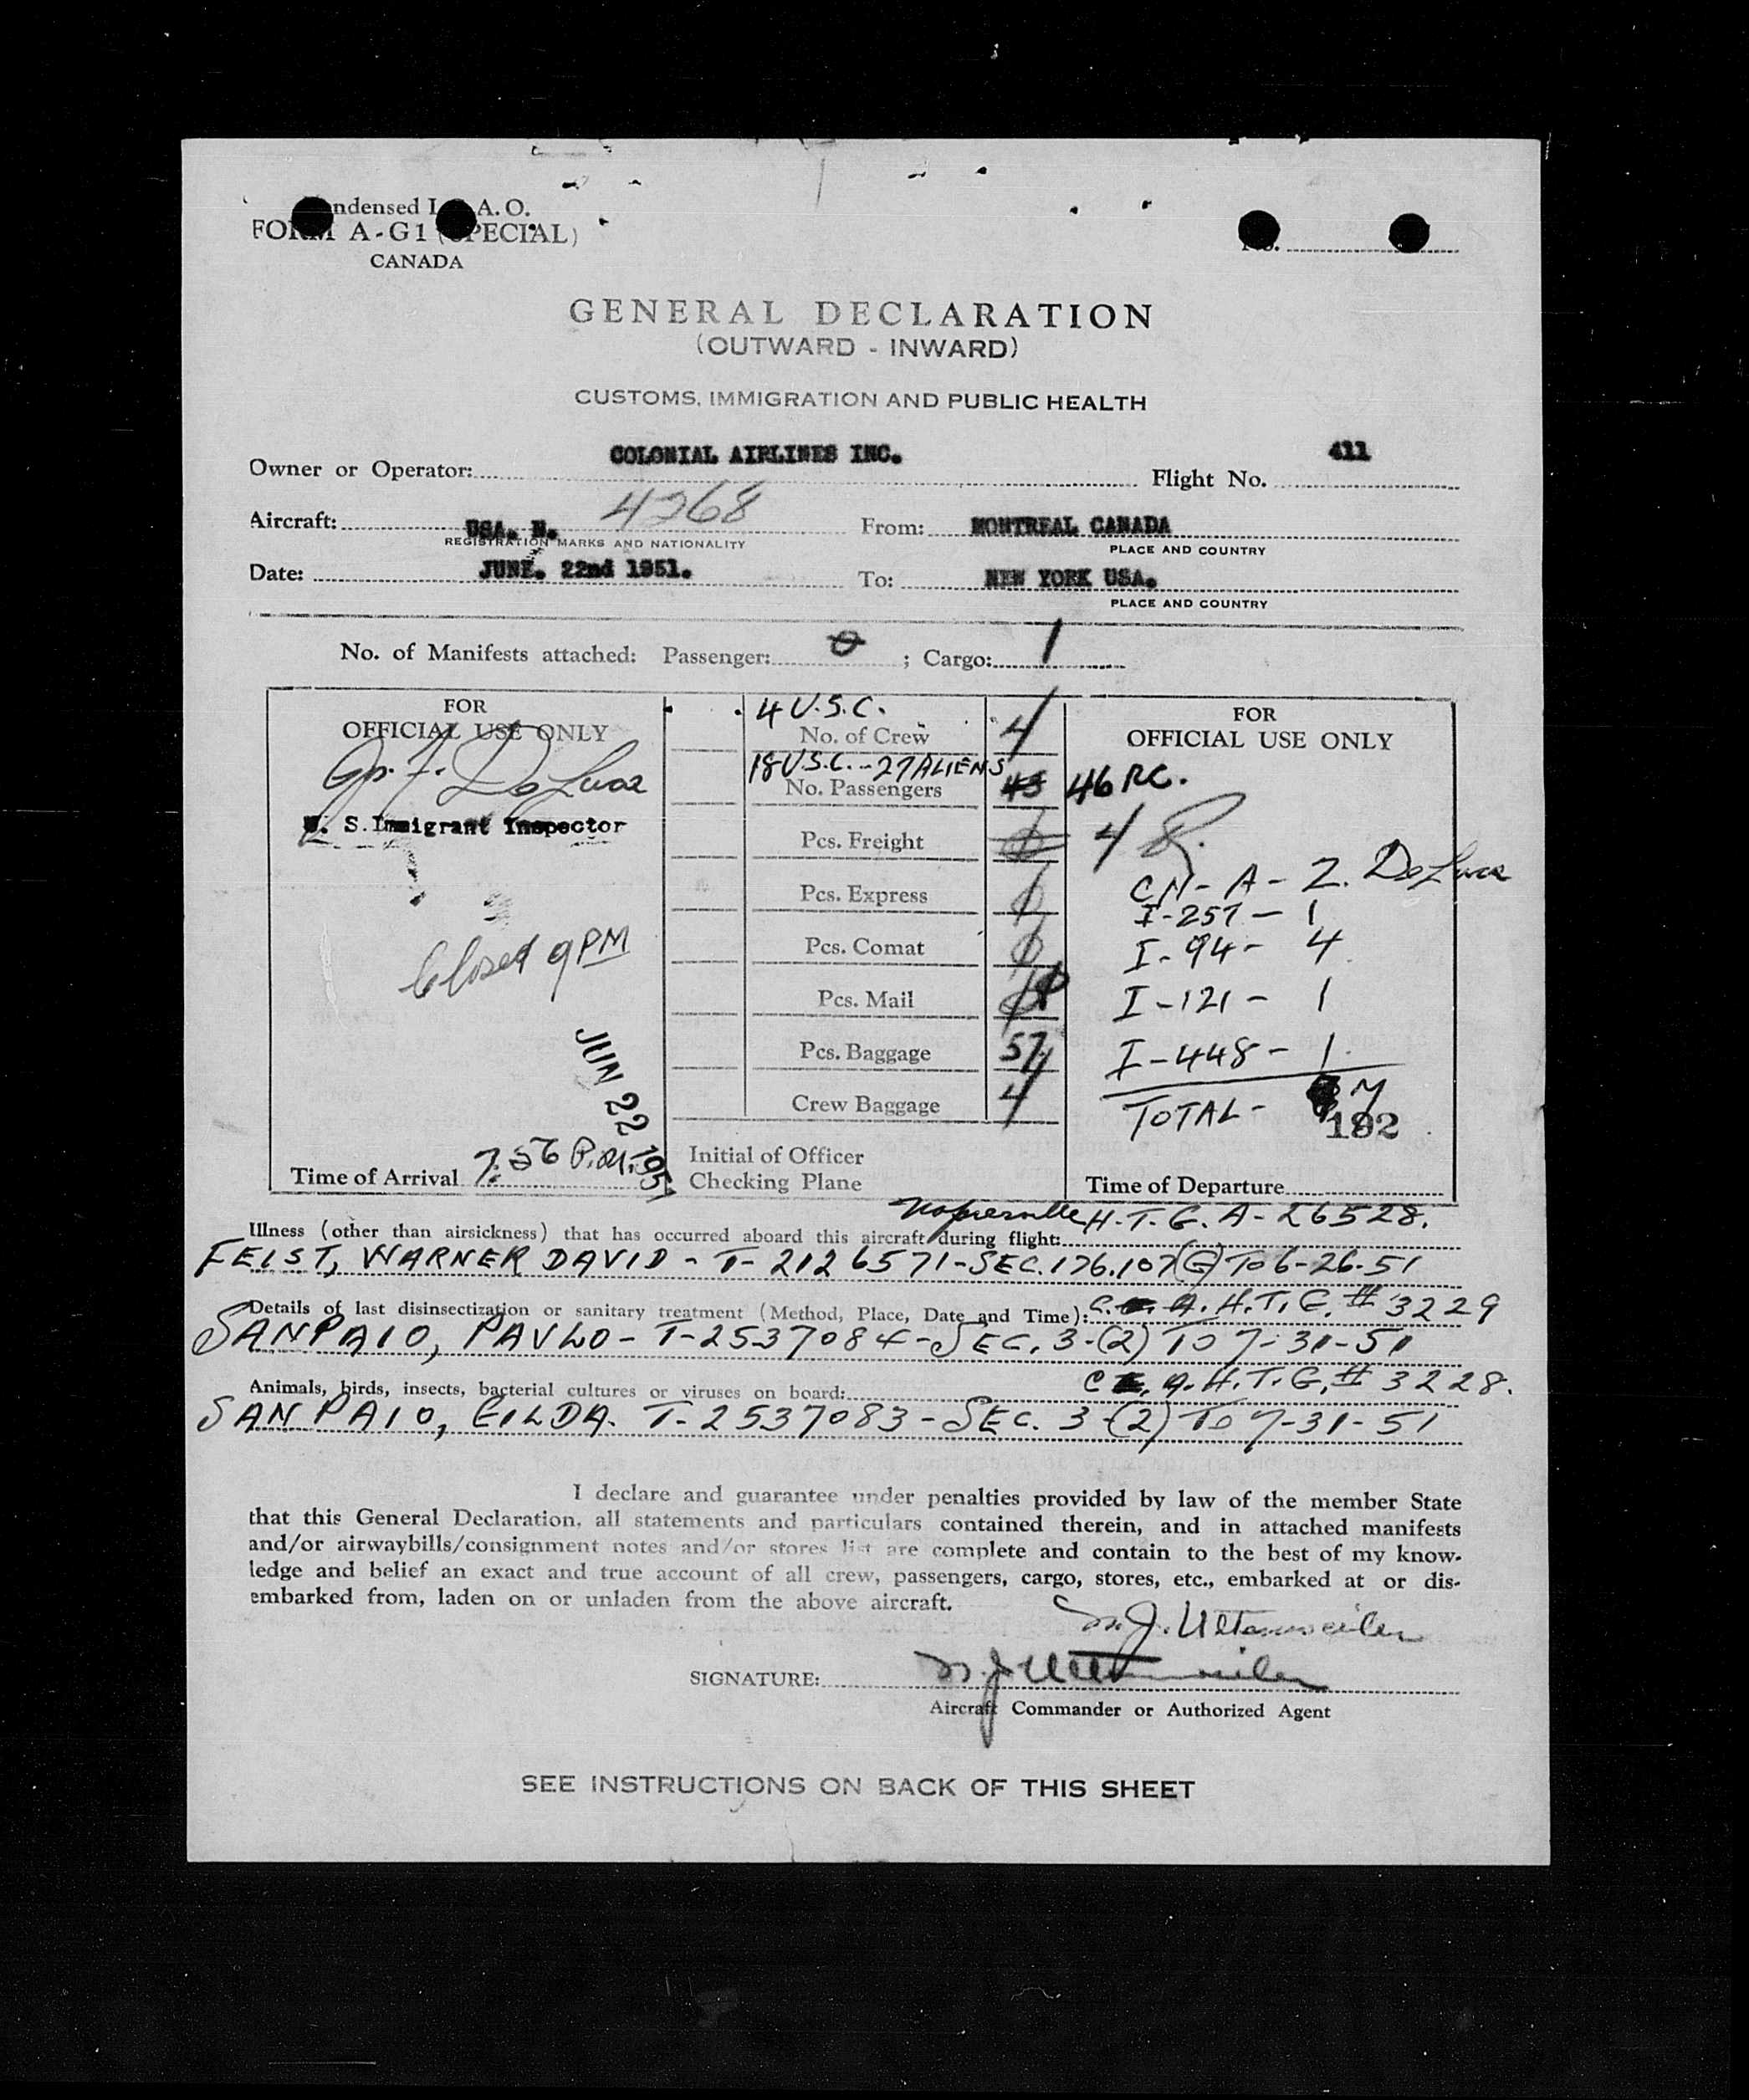 ndensed I A. O.
FORM A-G1 (SPECIAL)
CANADA
No.
GENERAL DECLARATION
(OUTWARD - INWARD)
CUSTOMS, IMMIGRATION AND PUBLIC HEALTH
Owner or Operator: COLONIAL AIRLINES INC. Flight No. 411
Aircraft: USA. N. 4268 From: MONTREAL CANADA
REGISTRATION MARKS AND NATIONALITY PLACE AND COUNTRY
Date: JUNE. 22nd 1951. To: NEW YORK USA.
PLACE AND COUNTRY
No. of Manifests attached: Passenger: 0 ; Cargo: 1
FOR
OFFICIAL USE ONLY
De Luca
U. S. Immigrant Inspector
Closed 9 PM
JUN 22 1951
Time of Arrival 7:56 P.M.
4 U.S.C.
No. of Crew 4
18 U.S.C. - 27 ALIENS
No. Passengers 45
Pcs. Freight
Pcs. Express
Pcs. Comat
Pcs. Mail
Pcs. Baggage 57
Crew Baggage 4
Initial of Officer
Checking Plane
FOR
OFFICIAL USE ONLY
46 RC.
4 
CN - A - Z. De Luca
I-257 - 1
I-94 - 4
I-121 - 1
I-448 - 1
TOTAL - 7
192
Time of Departure
Napierville H.T.G. A-26528.
Illness (other than airsickness) that has occurred aboard this aircraft during flight:
FEIST, WARNER DAVID - T-2126571 - SEC. 176.107(G) TO 6-26-51
Details of last disinsectization or sanitary treatment (Method, Place, Date and Time): C. A. H.T.G. # 3229
SANPAIO, PAVLO - T-2537084 - SEC. 3-(2) TO 7-31-51
Animals, birds, insects, bacterial cultures or viruses on board: C. A. H.T.G. # 3228.
SANPAIO, GILDA. T-2537083 - SEC. 3-(2) TO 7-31-51
I declare and guarantee under penalties provided by law of the member State
that this General Declaration, all statements and particulars contained therein, and in attached manifests
and/or airwaybills/consignment notes and/or stores list are complete and contain to the best of my know-
ledge and belief an exact and true account of all crew, passengers, cargo, stores, etc., embarked at or dis-
embarked from, laden on or unladen from the above aircraft.
SIGNATURE:
Aircraft Commander or Authorized Agent
SEE INSTRUCTIONS ON BACK OF THIS SHEET